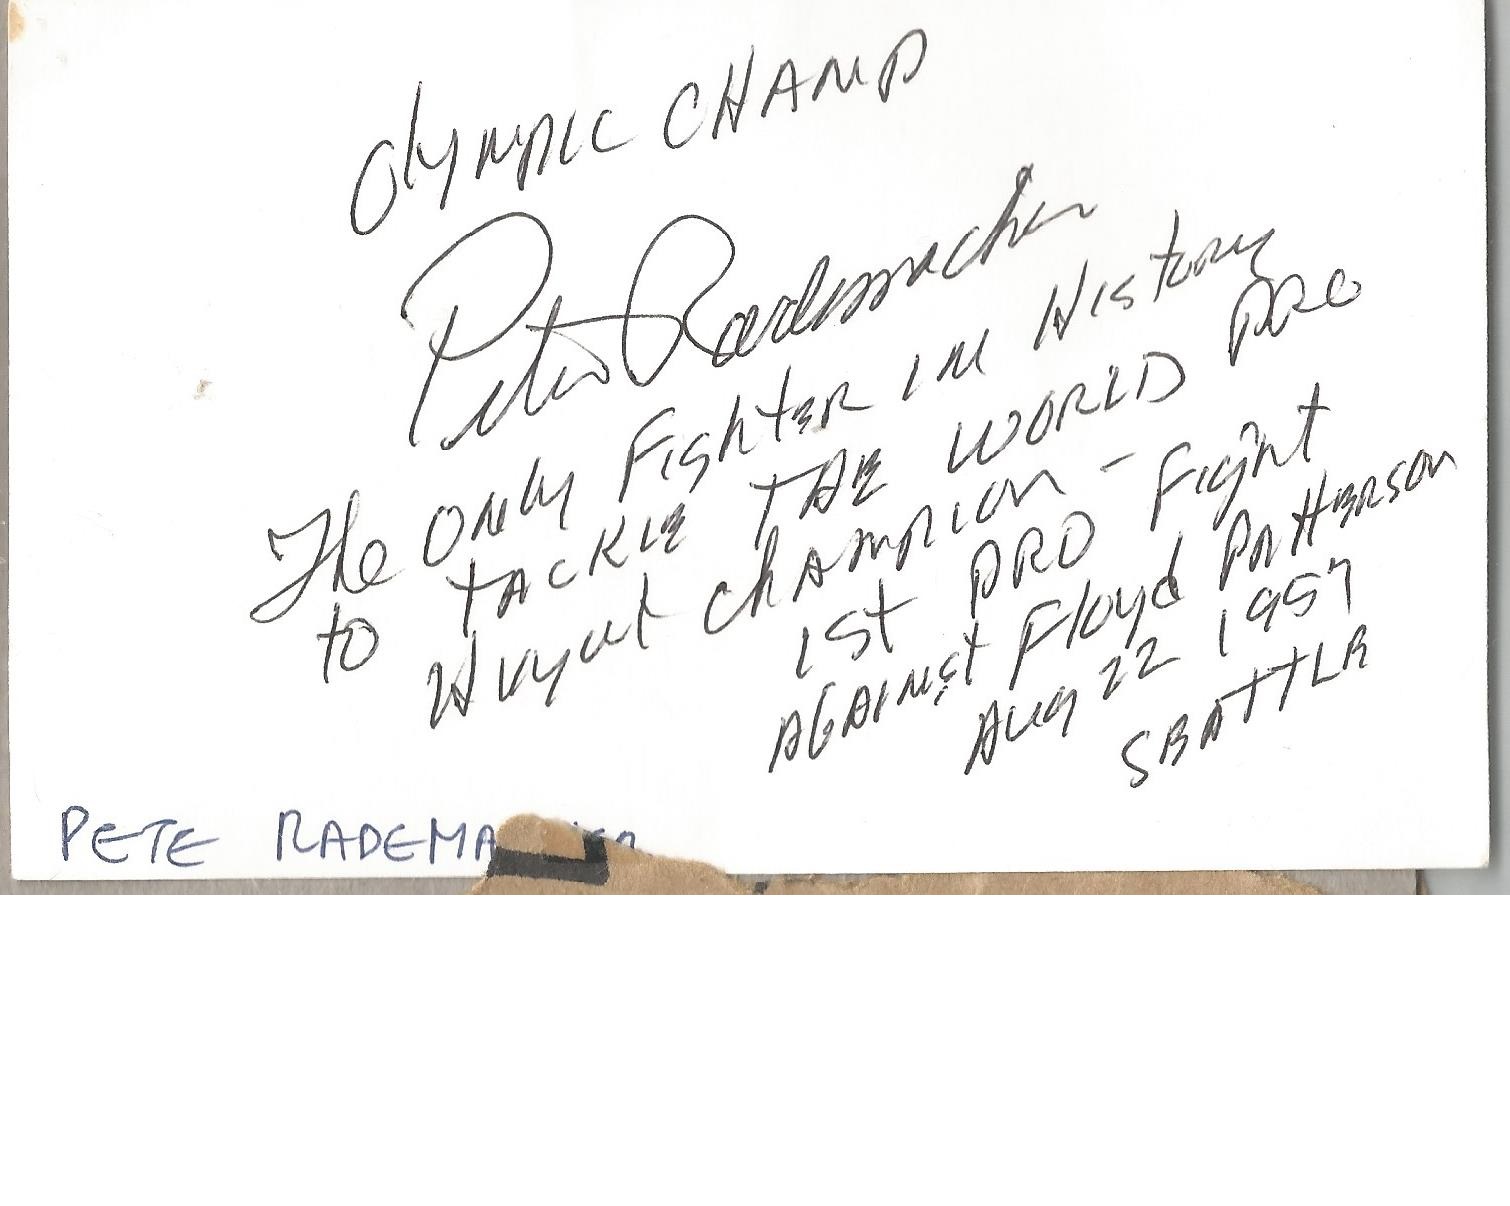 Olympic CHAMP
Pete Rademacher
The only Fighter in History
to TACKLE THE WORLD PRO
Hvywt Champion - Fight
1st PRO
AGAINST Floyd Patterson
Aug 22 1957
SEATTLE
PETE RADEMA